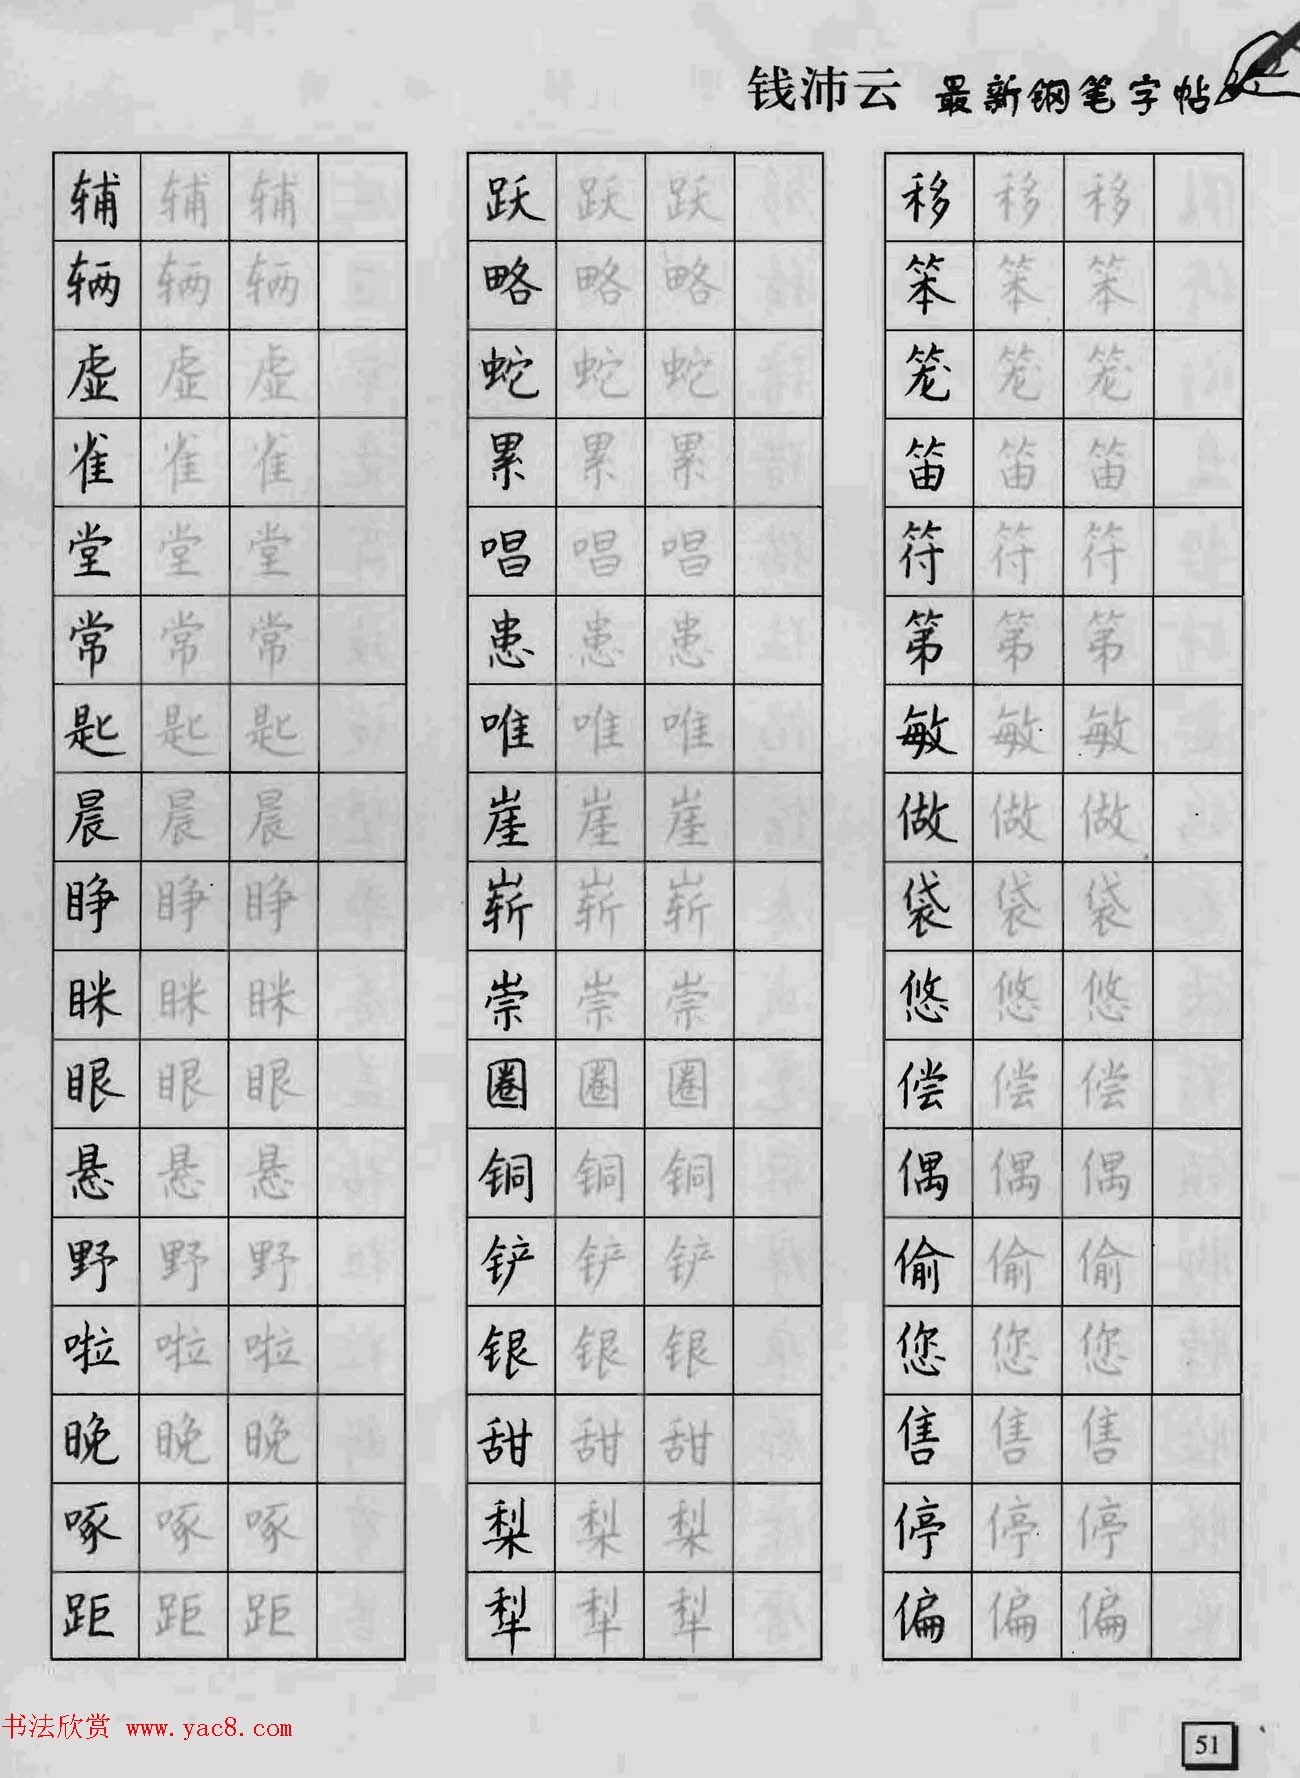 钱沛云 最新钢笔字帖
辅 辅 辅 跃 跃 跃 移 移 移
辆 辆 辆 略 略 略 笨 笨 笨
虚 虚 虚 蛇 蛇 蛇 笼 笼 笼
雀 雀 雀 累 累 累 笛 笛 笛
堂 堂 堂 唱 唱 唱 符 符 符
常 常 常 患 患 患 第 第 第
匙 匙 匙 唯 唯 唯 敏 敏 敏
晨 晨 晨 崖 崖 崖 做 做 做
睁 睁 睁 崭 崭 崭 袋 袋 袋
眯 眯 眯 崇 崇 崇 悠 悠 悠
眼 眼 眼 圈 圈 圈 偿 偿 偿
悬 悬 悬 铜 铜 铜 偶 偶 偶
野 野 野 铲 铲 铲 偷 偷 偷
啦 啦 啦 银 银 银 您 您 您
晚 晚 晚 甜 甜 甜 售 售 售
啄 啄 啄 梨 梨 梨 停 停 停
距 距 距 犁 犁 犁 偏 偏 偏
书法欣赏 www.yac8.com
51